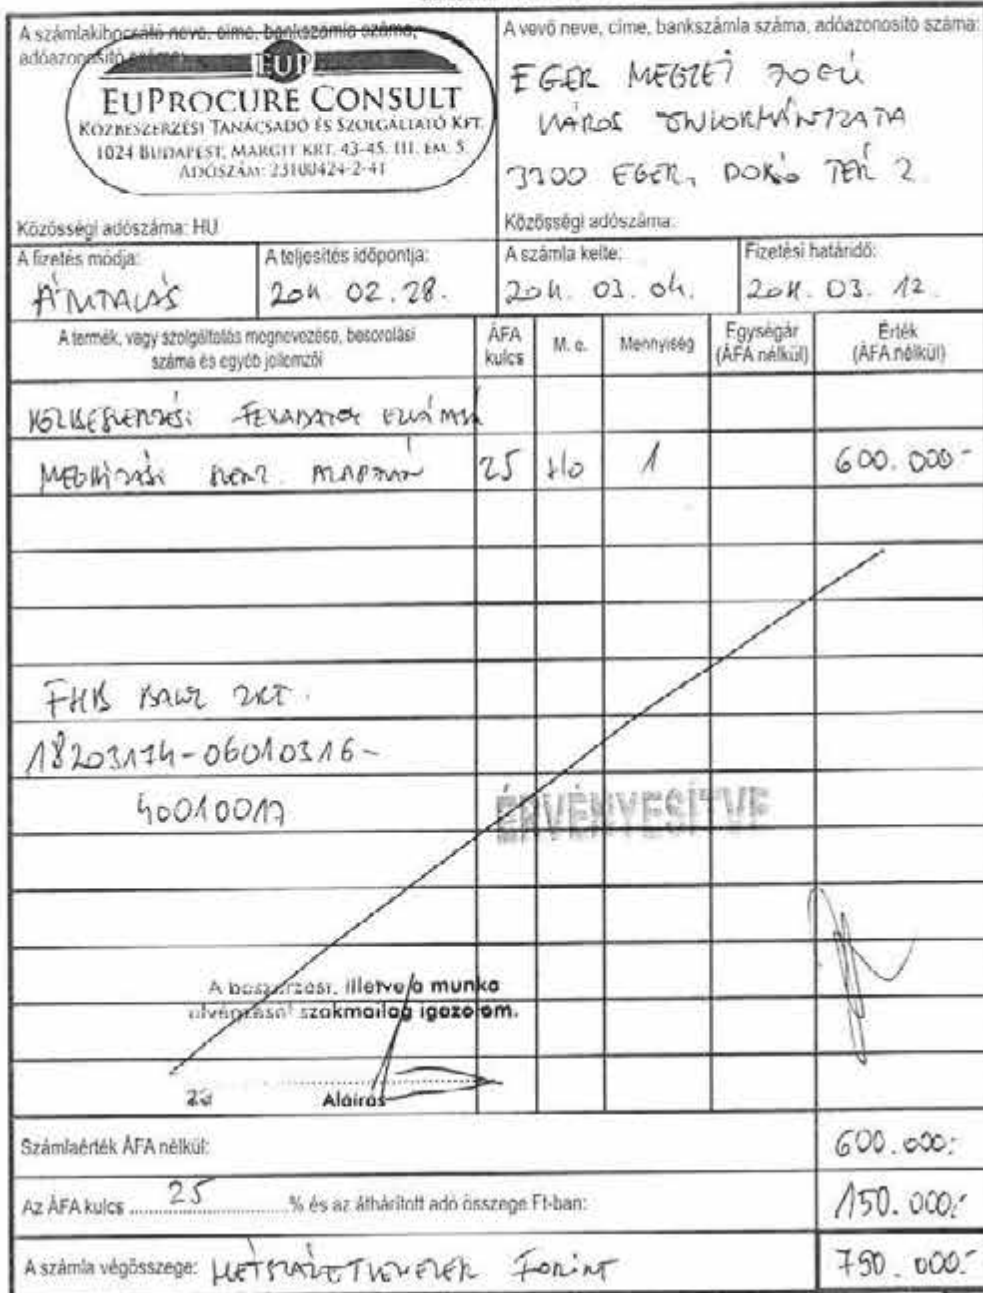 A számlakibocsátó neve, címe, bankszámla száma,
adóazonosító száma:
EUP
EUPROCURE CONSULT
KÖZBESZERZÉSI TANÁCSADÓ ÉS SZOLGÁLTATÓ KFT.
1024 BUDAPEST, MARGIT KRT. 43-45. III. EM. 5.
ADÓSZÁM: 23100424-2-41
Közösségi adószáma: HU
A vevő neve, címe, bankszámla száma, adóazonosító száma:
EGER MEGYEI JOGÚ
VÁROS ÖNKORMÁNYZATA
3300 EGER, DOBÓ TÉR 2.
Közösségi adószáma:
A fizetés módja:
ÁTUTALÁS
A teljesítés időpontja:
2011. 02. 28.
A számla kelte:
2011. 03. 04.
Fizetési határidő:
2011. 03. 12.
A termék, vagy szolgáltatás megnevezése, besorolási
száma és egyéb jellemzői
ÁFA
kulcs
M. e.
Mennyiség
Egységár
(ÁFA nélkül)
Érték
(ÁFA nélkül)
KÖZBESZERZÉSI FELADATOK ELLÁTÁSA
MEGBÍZÁSI SZERZ. ALAPJÁN 25 1 600.000.-
FHB BANK ZRT.
18203174-06010316-
40010017
ÉRVÉNYESÍTVE
A beszerzést, illetve a munka
elvégzését szakmailag igazolom.
20
Aláírás
Számlaérték ÁFA nélkül: 600.000.-
Az ÁFA kulcs 25 % és az áthárított adó összege Ft-ban: 150.000.-
A számla végösszege: HÉTSZÁZÖTVENEZER FORINT 750.000.-